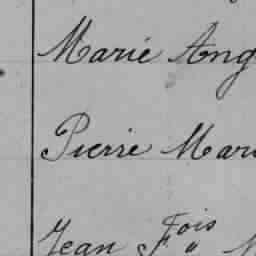 Marie Ang
Pierre Mari
Jean Fois